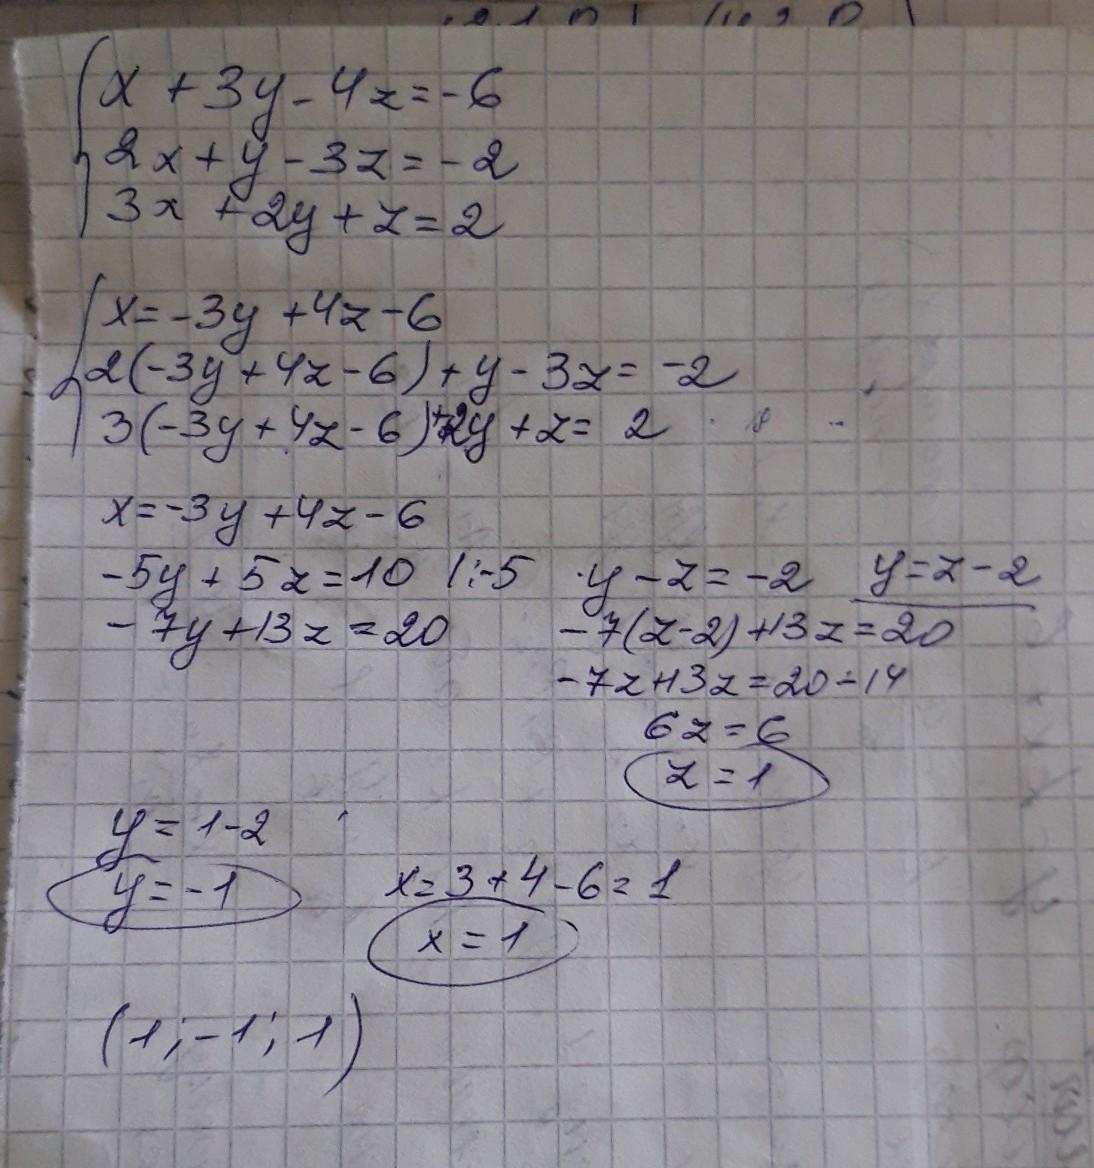 x + 3y - 4z = -6
2x + y - 3z = -2
3x + 2y + z = 2
x = -3y + 4z - 6
2(-3y + 4z - 6) + y - 3z = -2
3(-3y + 4z - 6) + 2y + z = 2
x = -3y + 4z - 6
-5y + 5z = 10 |:-5
-7y + 13z = 20
y - z = -2
y = z - 2
-7(z - 2) + 13z = 20
-7z + 13z = 20 - 14
6z = 6
z = 1
y = 1 - 2
y = -1
x = 3 + 4 - 6 = 1
x = 1
(1; -1; 1)